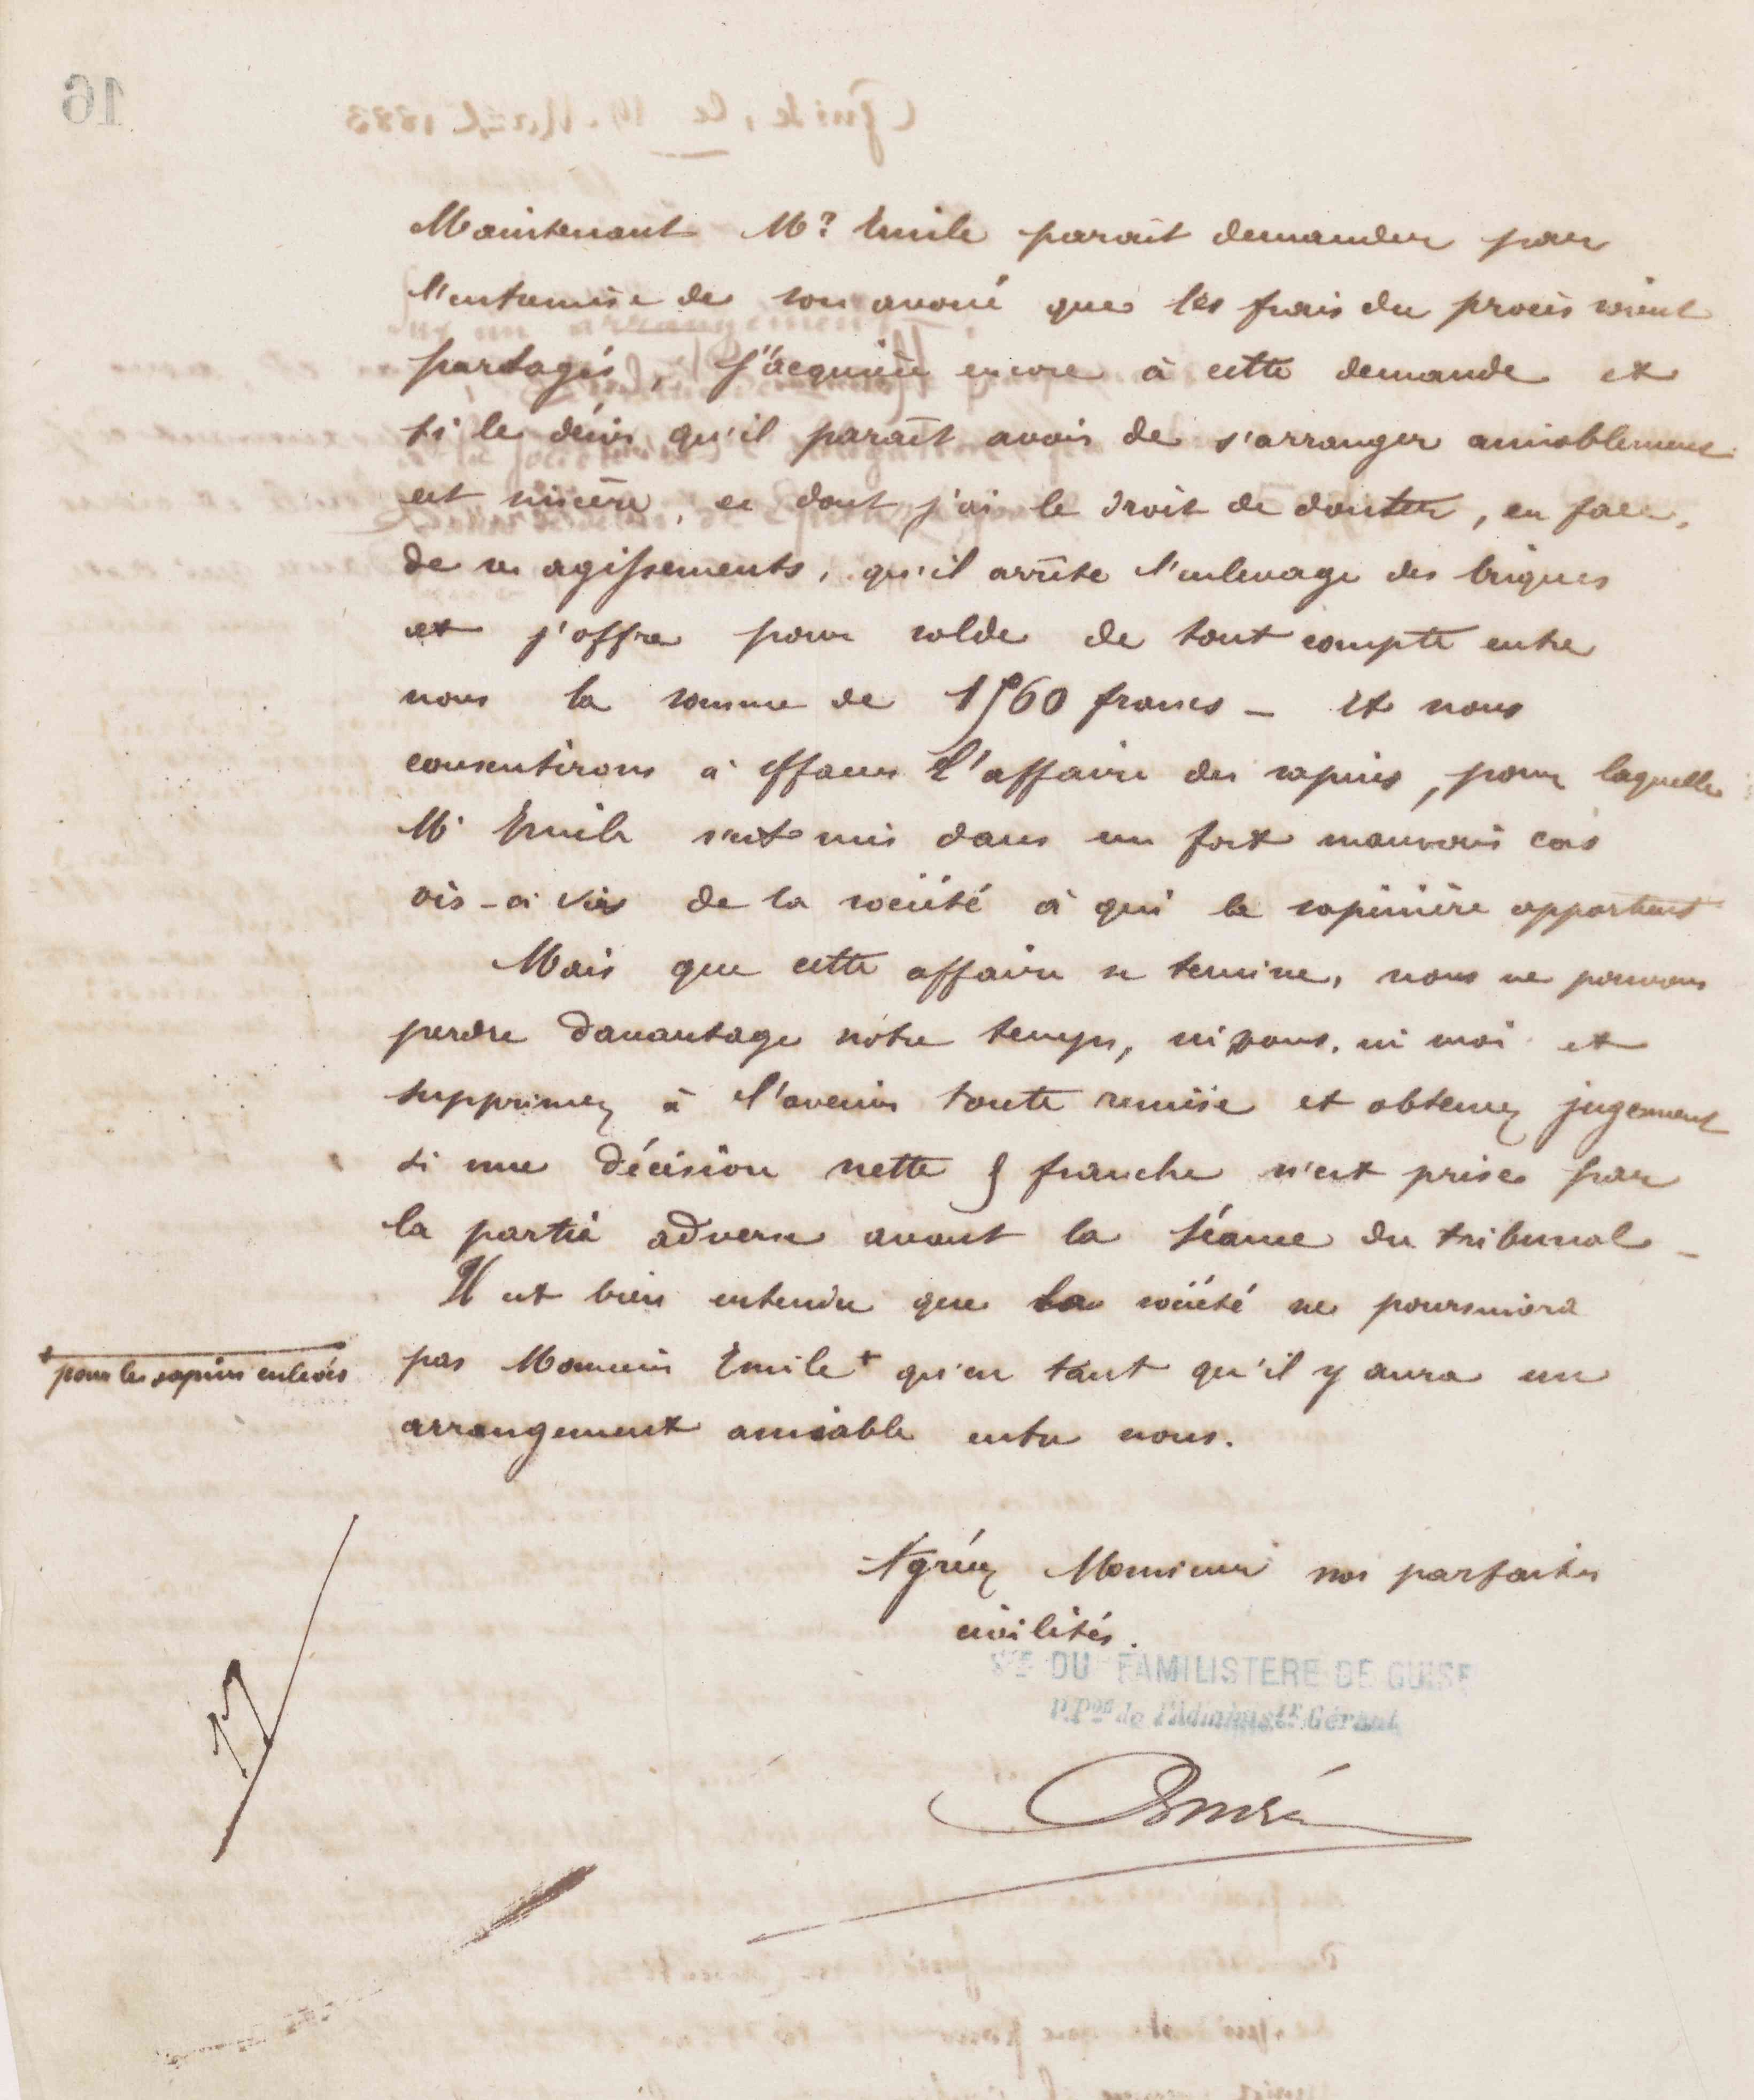 16
Guise, le 14 Mars 1883
Maintenant Mr Emile parait demander par
l'entremise de son avoué que les frais du procès soient
partagés, J'acquièce encore à cette demande et
si le désir qu'il paraît avoir de s'arranger amiablement
est sincère, ce dont j'ai le droit de douter, en face,
de ses agissements, qu'il arrête l'enlevage des briques
et j'offre pour solde de tout compte entre
nous la somme de 1560 francs _ Et nous
consentirons à effacer l'affaire des sapins, pour laquelle
Mr Emile s'est mis dans un fort mauvais cas
vis-à-vis de la société à qui la sapinière appartient
Mais que cette affaire se termine, nous ne pouvons
perdre davantage notre temps, ni vous, ni moi et
supprimez à l'avenir toute remise et obtenez jugement
si une décision nette & franche n'est prise par
la partie adverse avant la séance du tribunal _
Il est bien entendu que la société ne poursuivra
pas Monsieur Emile + qu'en tant qu'il y aura un
+ pour les sapins enlevés
arrangement amiable entre nous.
Agréez Monsieur nos parfaites
civilités.
Sté DU FAMILISTERE DE GUISE
P.Pon de l'Administr Gérant
André